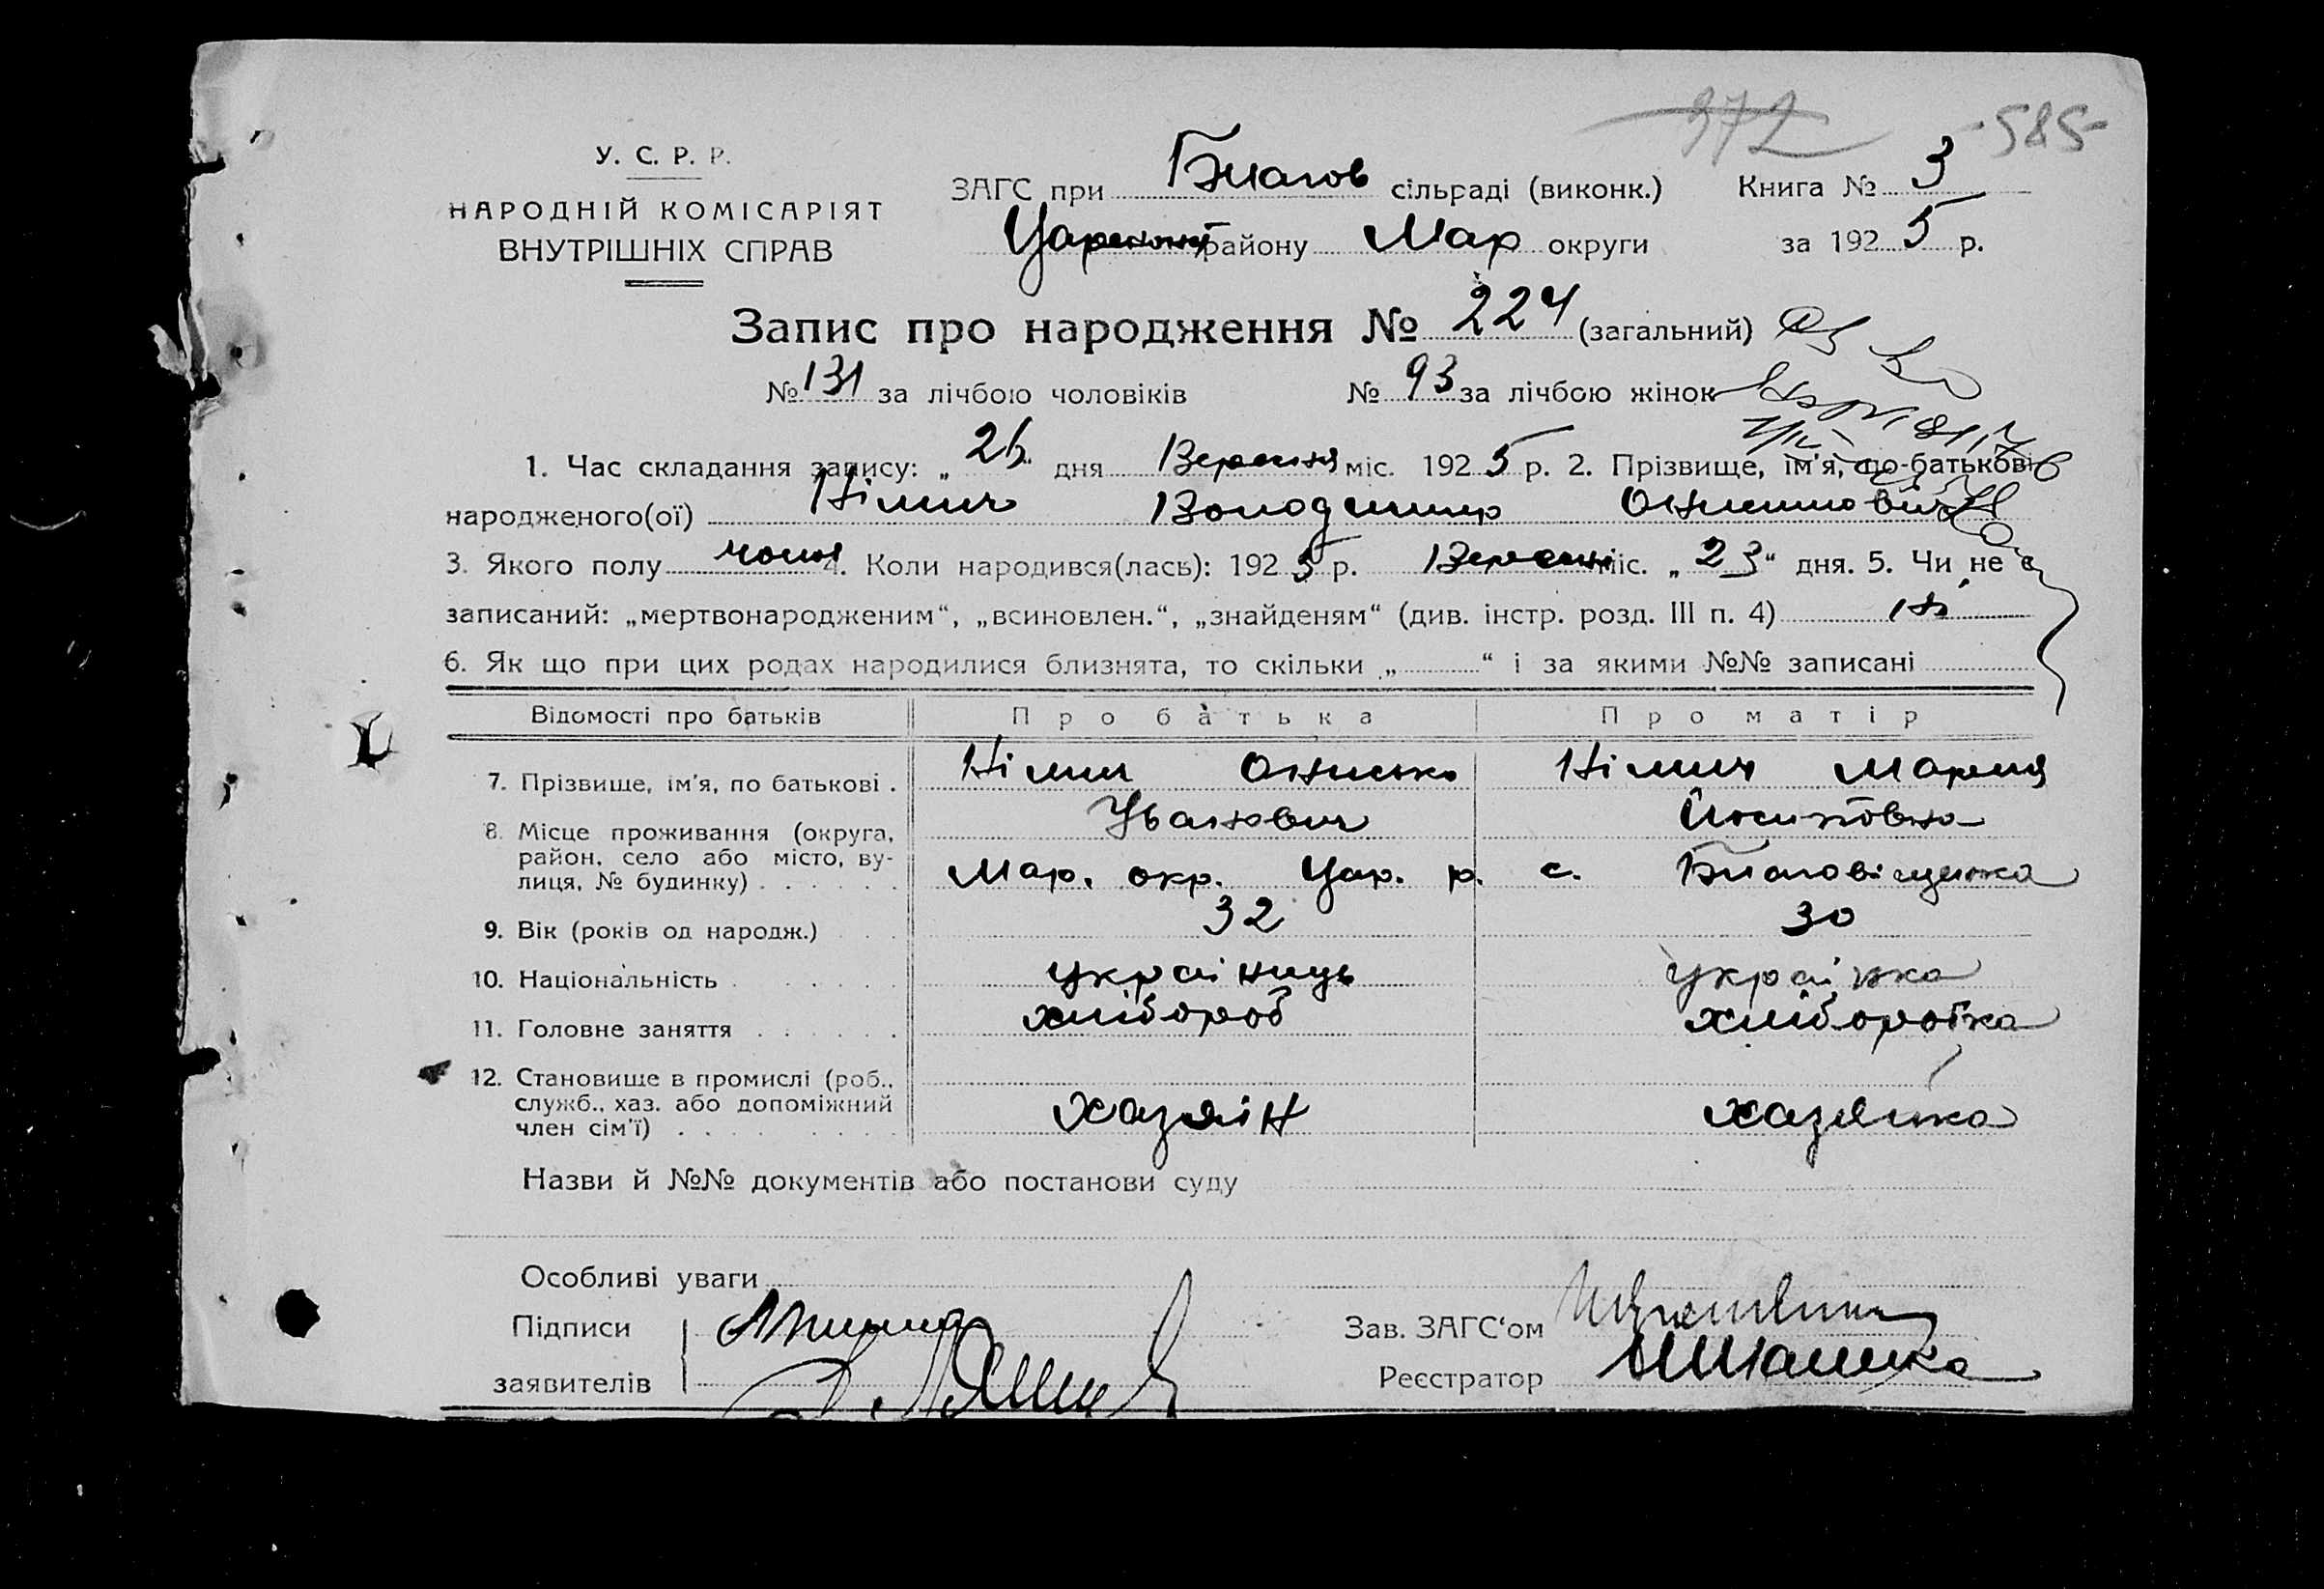 372 -585-
У. С. Р. Р.
НАРОДНІЙ КОМІСАРІЯТ
ВНУТРІШНІХ СПРАВ
ЗАГС при Благов сільраді (виконк.) Книга № 3
району Мар округи за 1925 р.
Запис про народження № 224 (загальний)
№ 131 за лічбою чоловіків № 93 за лічбою жінок
1. Час складання запису: „26“ дня Вересня міс. 1925 р. 2. Прізвище, ім'я, по-батькові
народженого(ої) Німич Володимир
3. Якого полу чолов 4. Коли народився(лась): 1925 р. Вересня міс. „23“ дня. 5. Чи не є
записаний: „мертвонародженим“, „всиновлен.“, „знайденям“ (див. інстр. розд. III п. 4) ні
6. Як що при цих родах народилися близнята, то скільки „ “ і за якими №№ записані
Відомості про батьків Про батька Про матір
7. Прізвище, ім'я, по батькові . Німич Онисько Німич Мария
Иванович Йосиповна
8. Місце проживання (округа, район, село або місто, вулиця, № будинку) Мар. окр. Цар. р. с. Благовіщенка
9. Вік (років од народж.) 32 30
10. Національність україниць українка
11. Головне заняття хлібороб хліборобка
12. Становище в промислі (роб., служб., хаз. або допоміжний член сім'ї) хазяїн хазяйка
Назви й №№ документів або постанови суду
Особливі уваги
Підписи
заявителів
Зав. ЗАГС'ом
Реєстратор